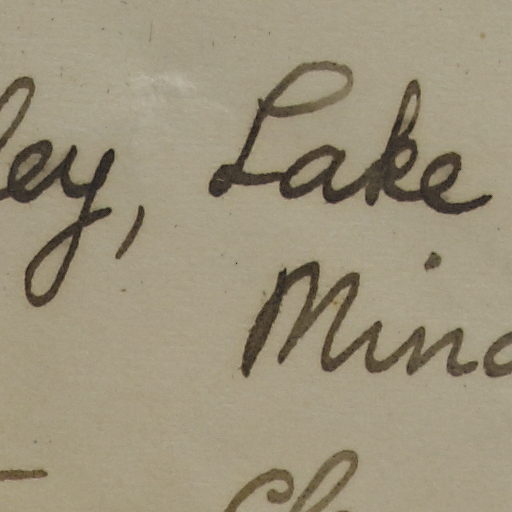 ley, Lake
Minc
Ch